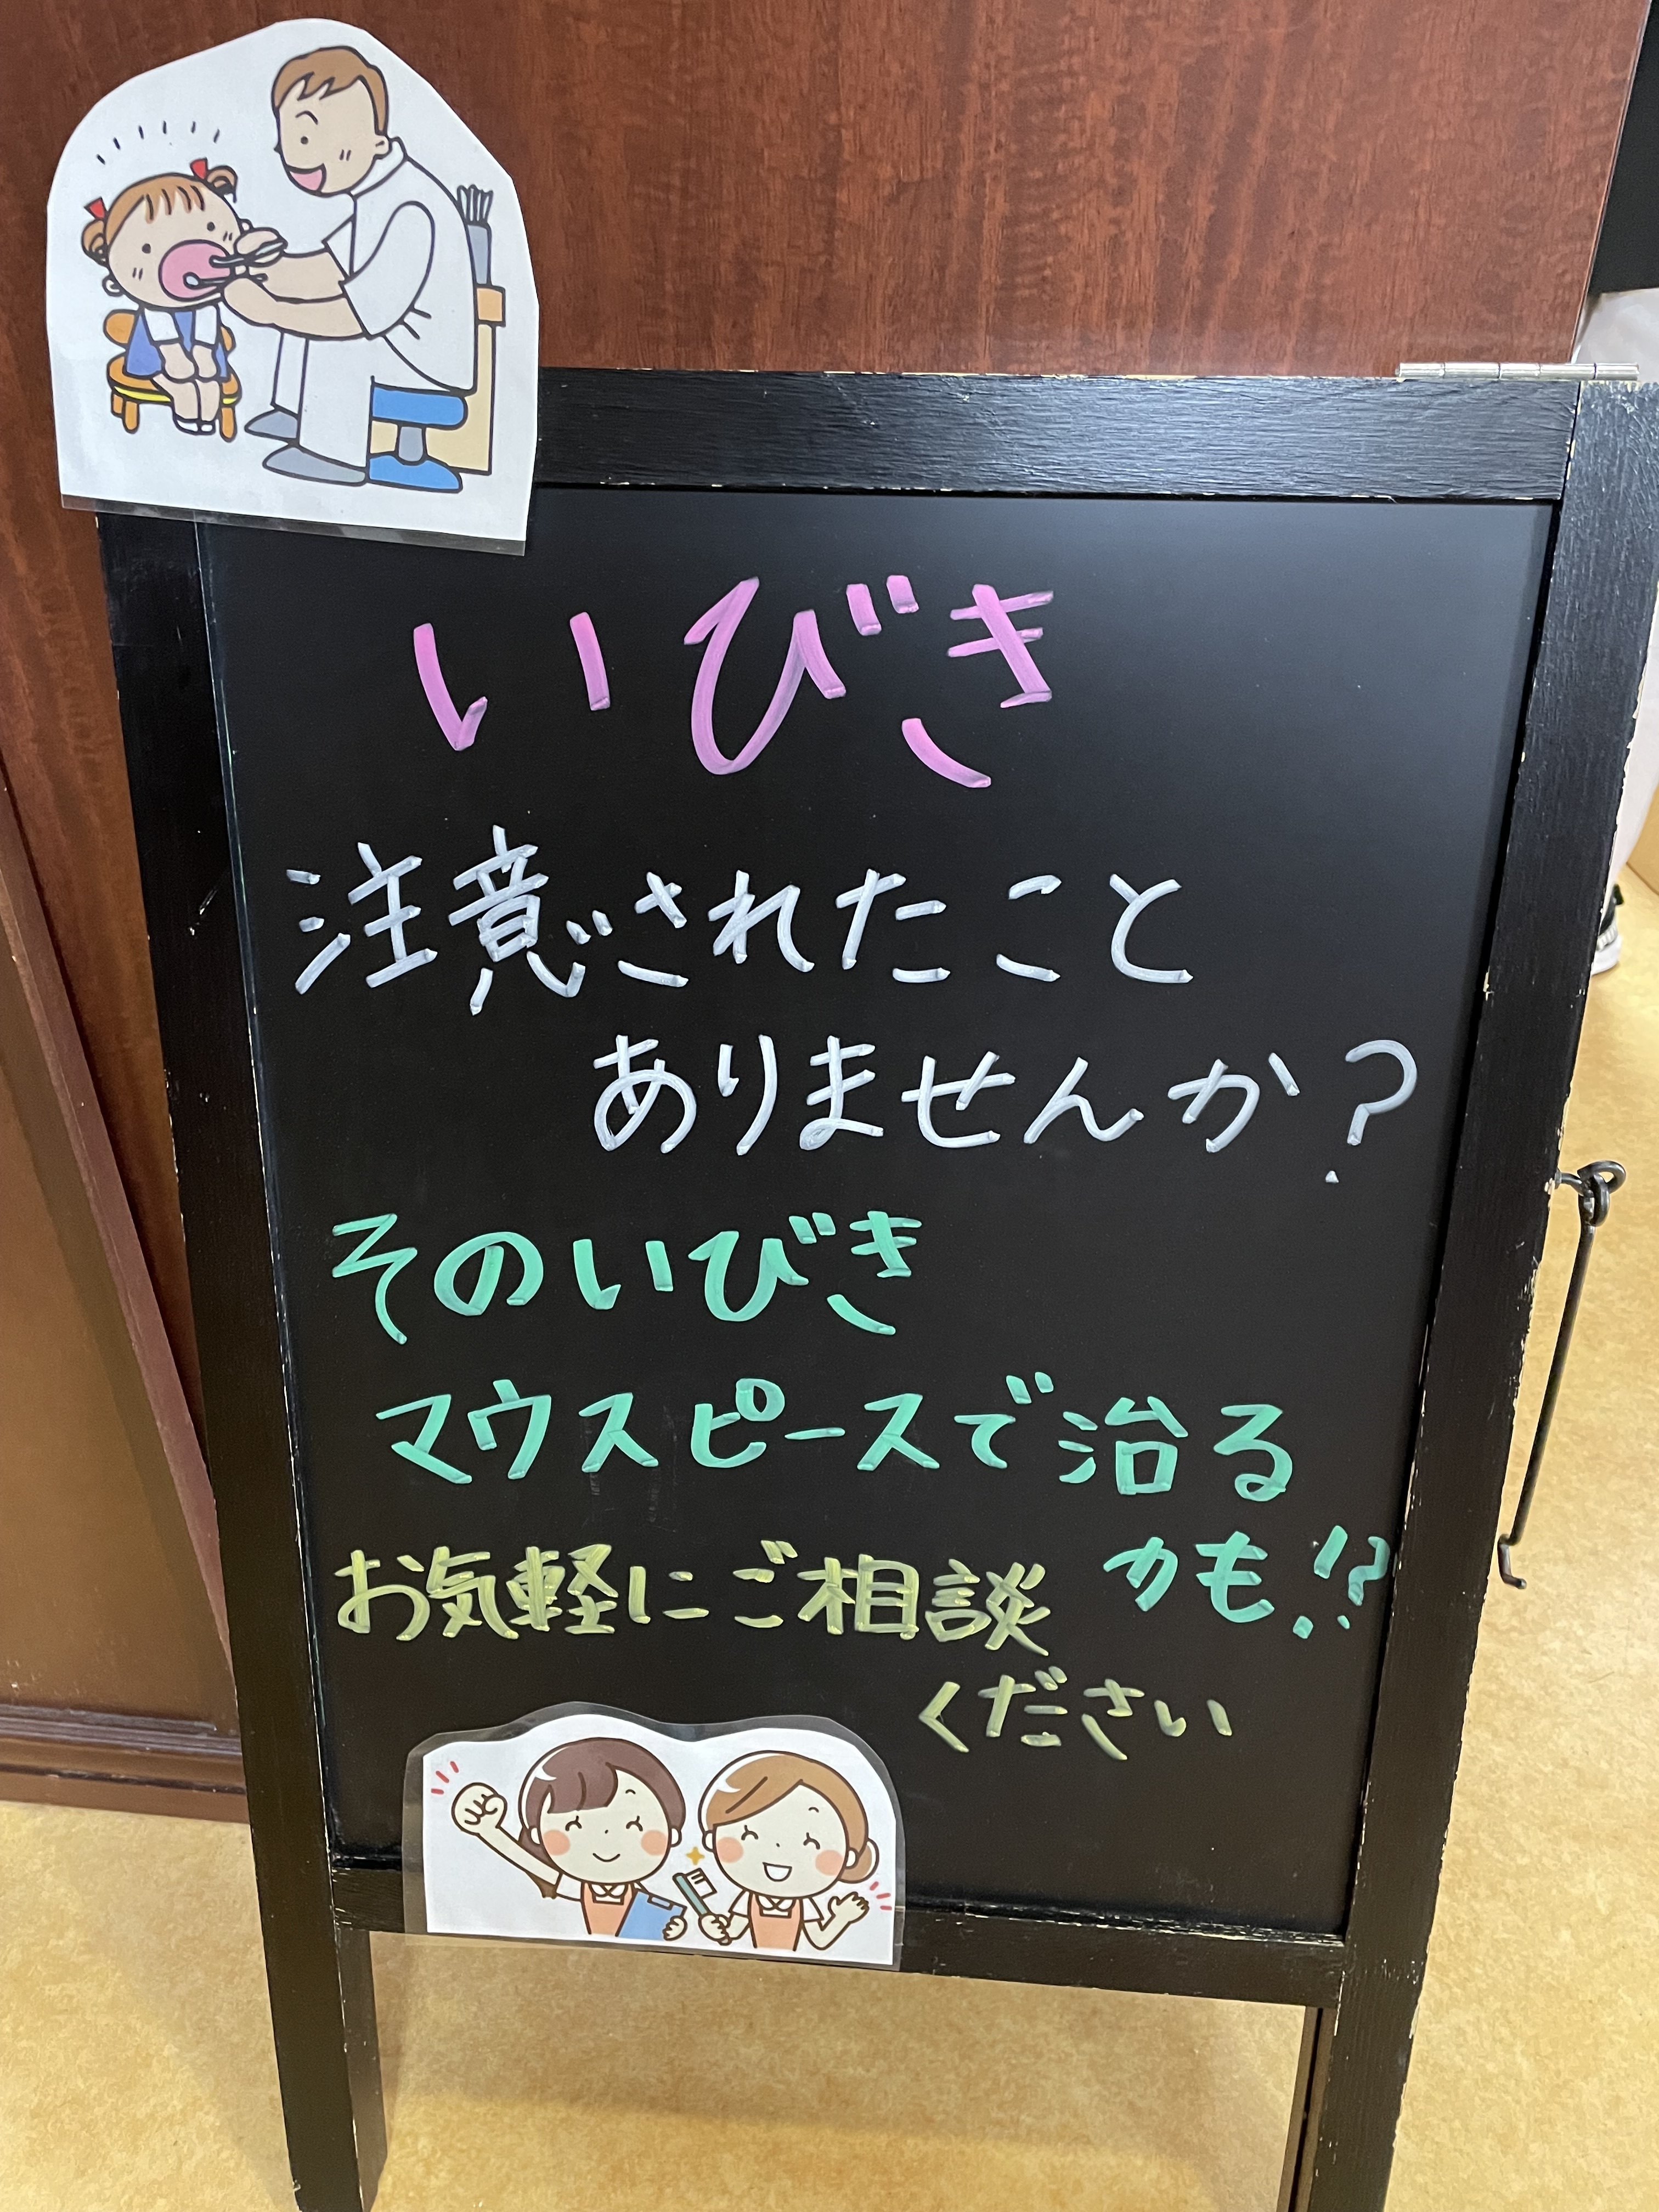 いびき
注意されたこと
ありませんか?
そのいびき
マウスピースで治る
かも!?
お気軽にご相談
ください